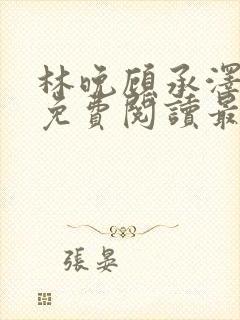 林晚顧承澤
免費閱讀最
張晏